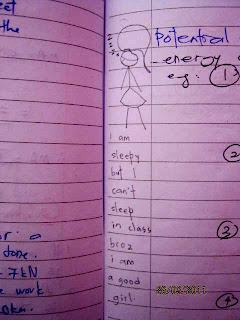 eet
the
Potential
- energy
eg: ①
i am
sleepy
but I
can't
sleep
②
in class
③
broz
i am
a good
girl.
④
or: a
done.
7 kN
work
25/02/2011